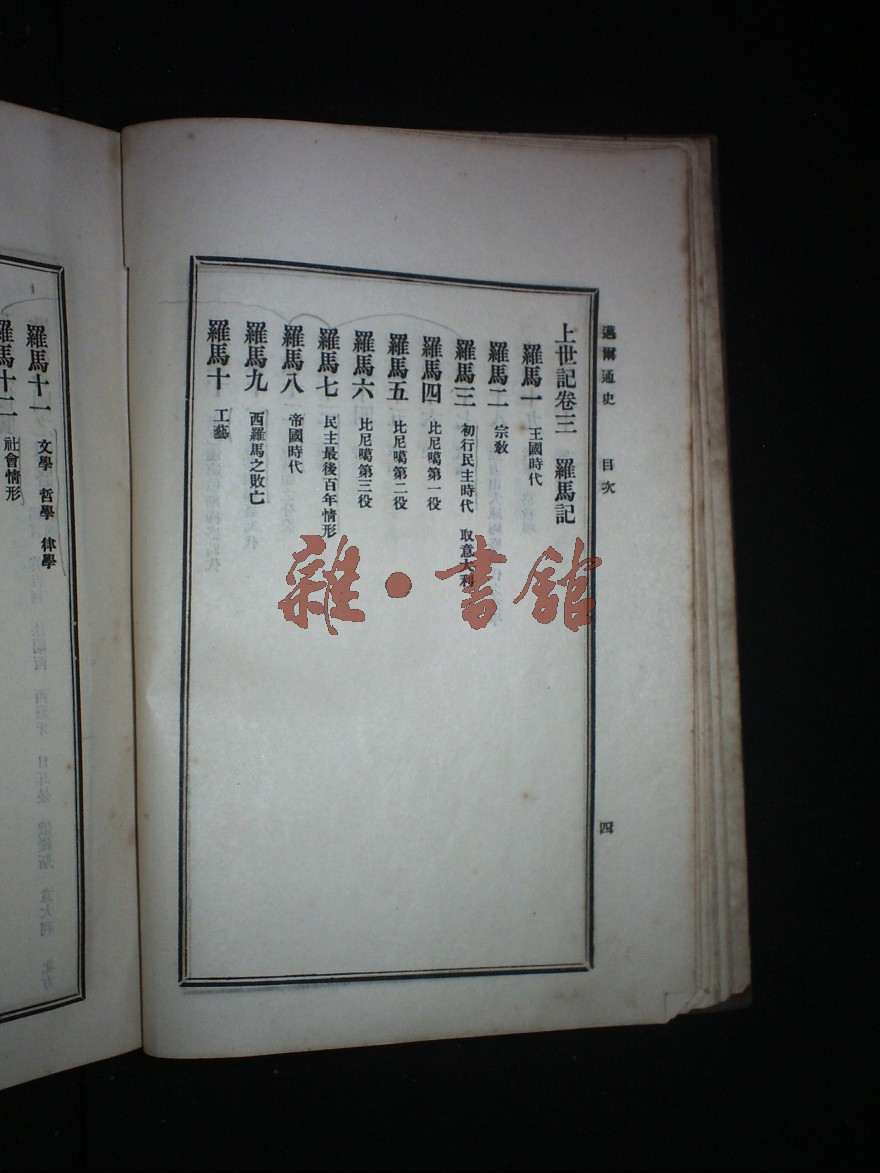 邁爾通史 目次 四
上世記卷三 羅馬記
羅馬一 王國時代
羅馬二 宗敎
羅馬三 初行民主時代 取意大利
羅馬四 比尼噶第一役
羅馬五 比尼噶第二役
羅馬六 比尼噶第三役
羅馬七 民主最後百年情形
羅馬八 帝國時代
羅馬九 西羅馬之敗亡
羅馬十 工藝
羅馬十一 文學 哲學 律學
羅馬十二 社會情形
雜·書館